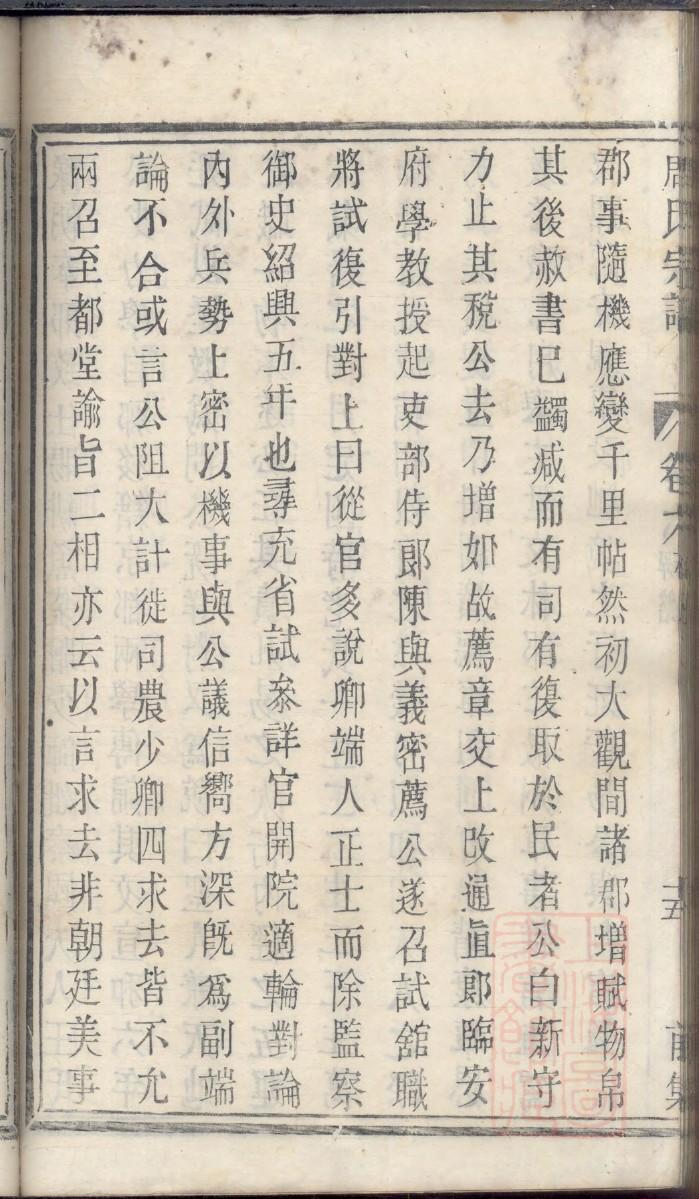 周氏宗譜 卷六 十五 前集
郡事隨機應變千里帖然初大觀間諸郡增賦物帛
其後赦書已蠲减而有司有復取於民者公白新守
力止其稅公去乃增如故薦章交上改通直郎臨安
府學教授起吏部侍郎陳與義密薦公遂召試舘職
將試復引對上曰從官多說卿端人正士而除監察
御史紹興五年也尋充省試叅詳官開院適輪對論
內外兵勢上密以機事與公議信嚮方深旣爲副端
論不合或言公阻大計徙司農少卿四求去皆不允
兩召至都堂諭旨二相亦云以言求去非朝廷美事